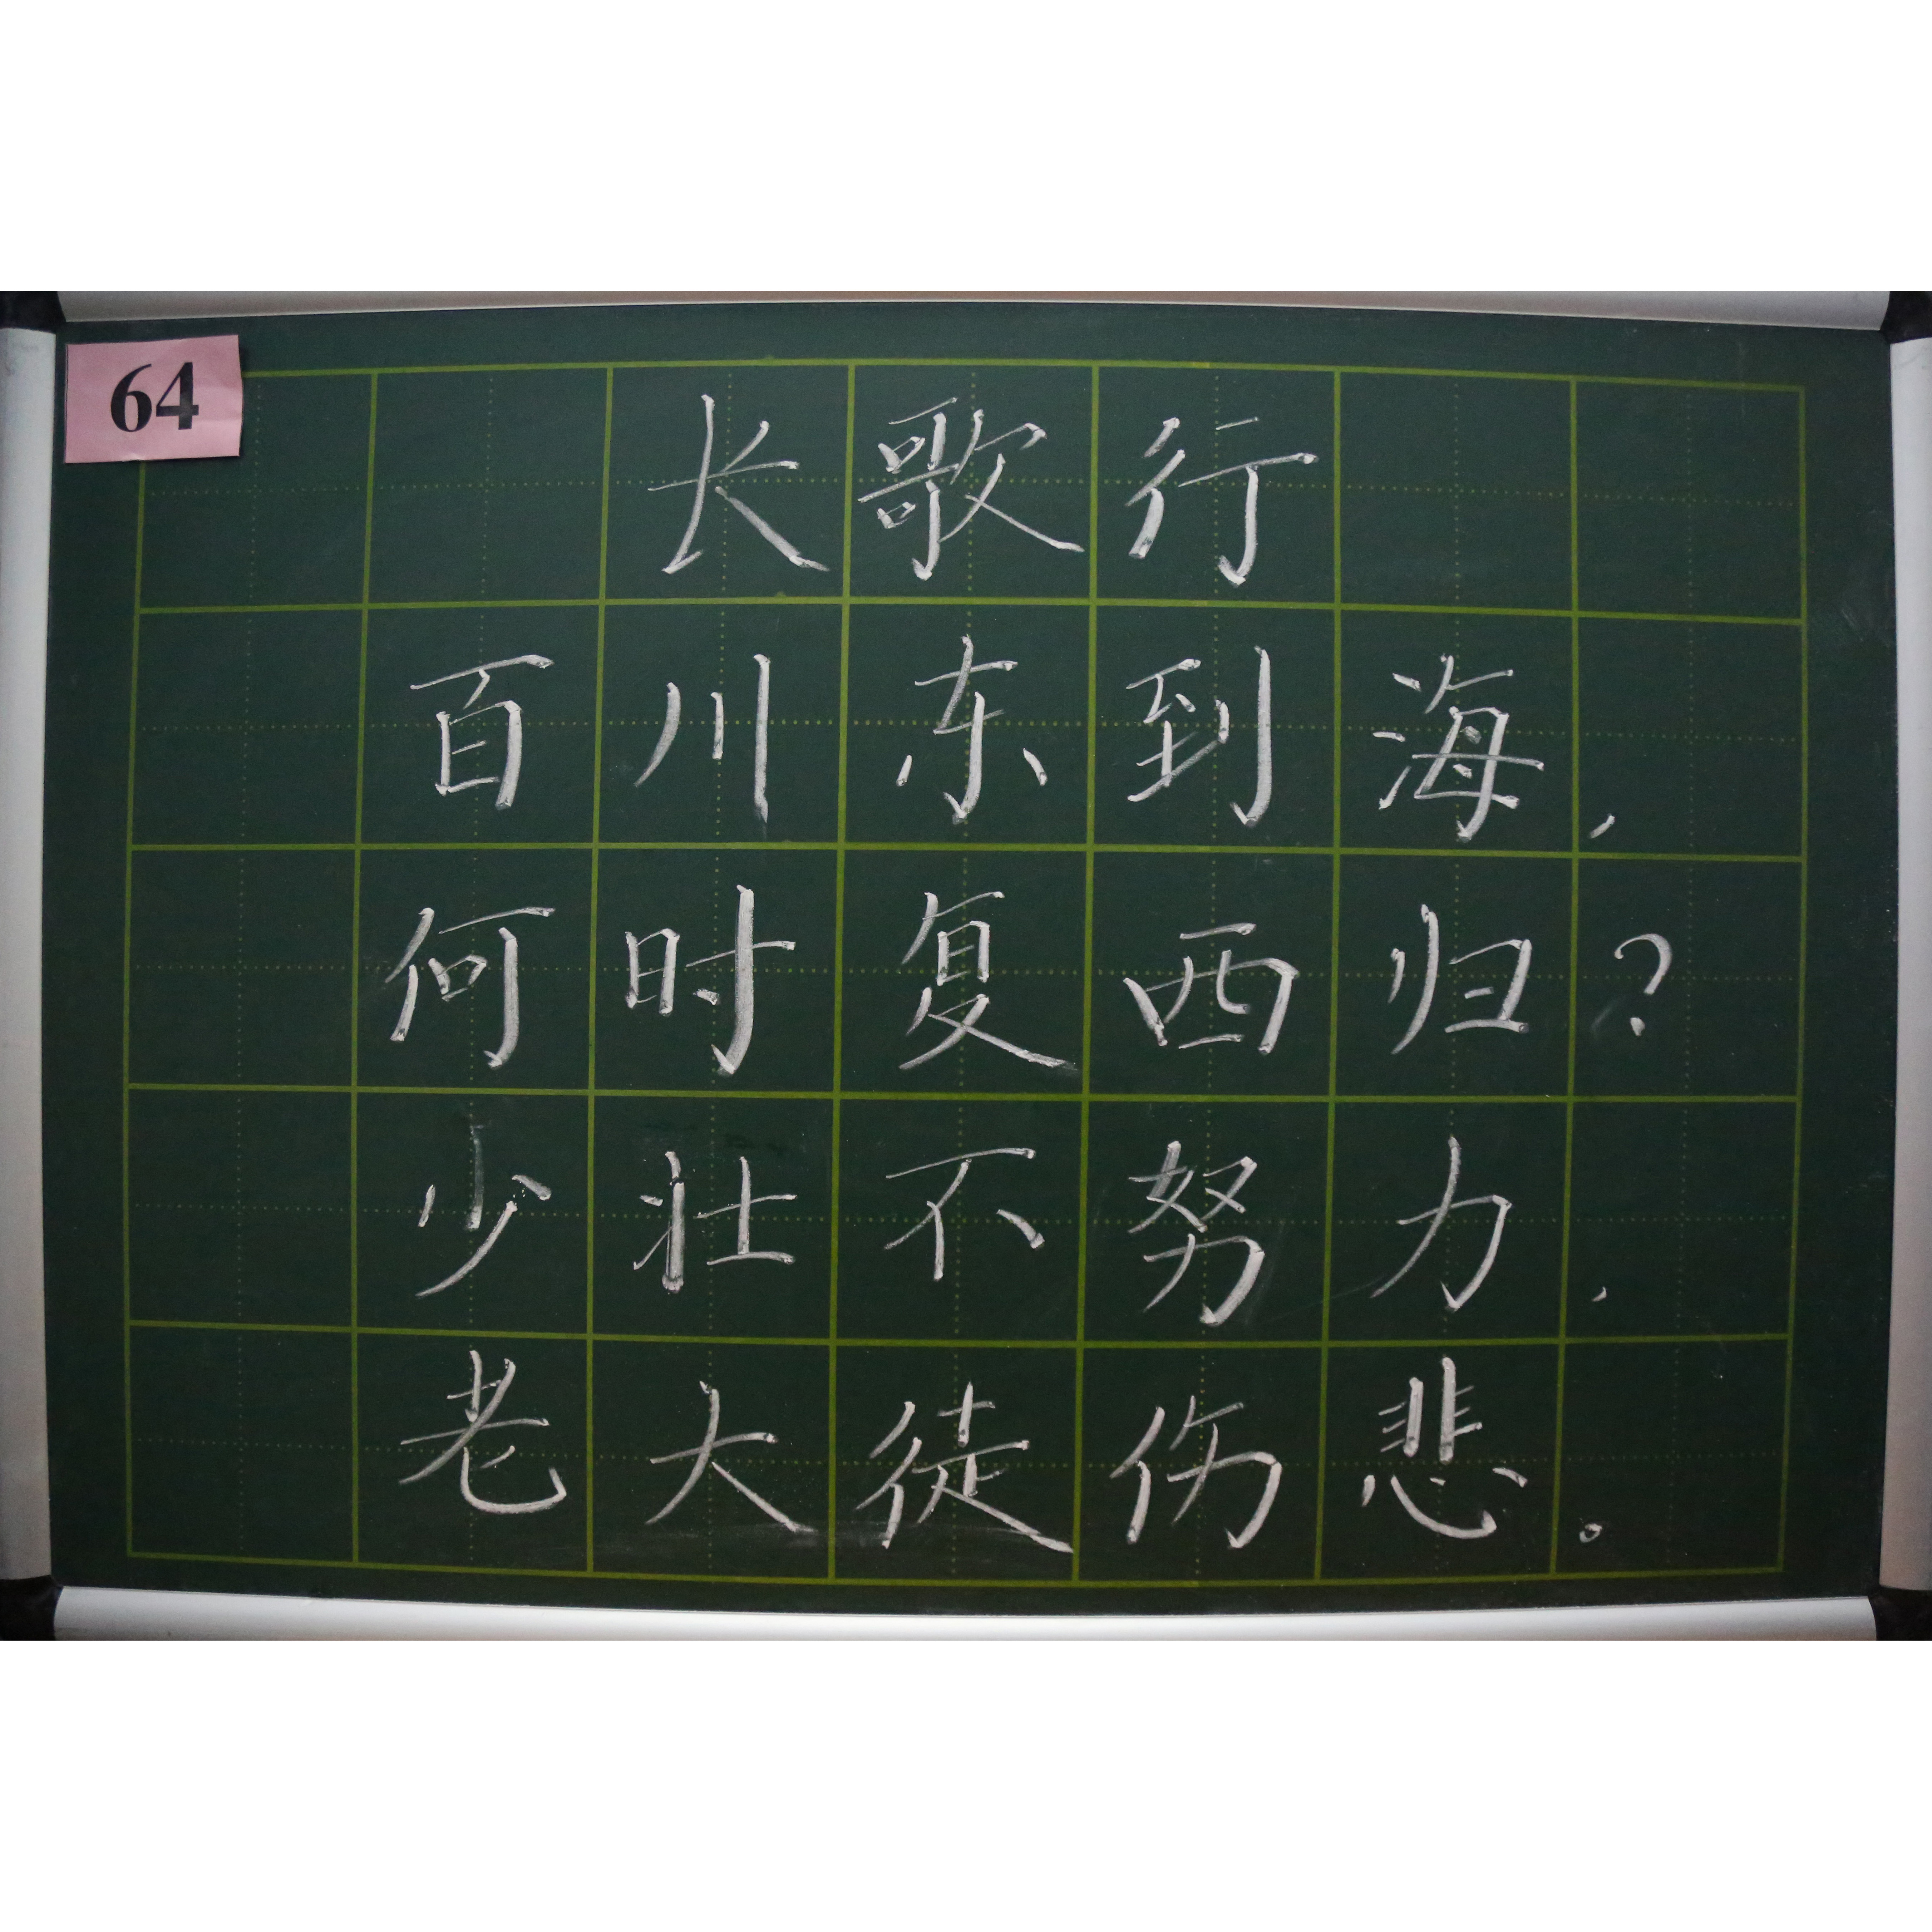 64
长歌行
百川东到海，
何时复西归？
少壮不努力，
老大徒伤悲。